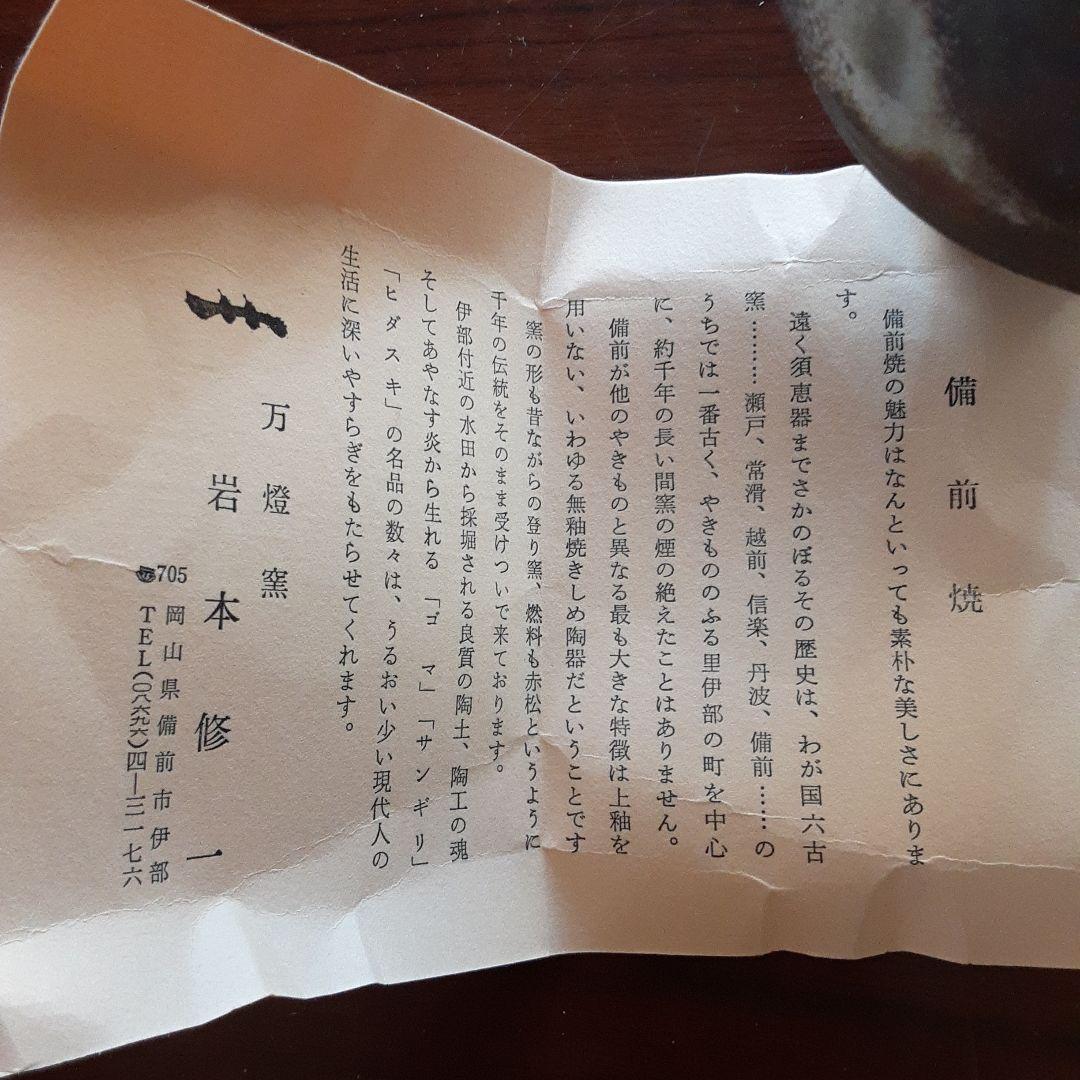 備前焼
備前焼の魅力はなんといっても素朴な美しさにありま
す。
遠く須恵器までさかのぼるその歴史は、わが国六古
窯………瀬戸、常滑、越前、信楽、丹波、備前……の
うちでは一番古く、やきもののふる里伊部の町を中心
に、約千年の長い間窯の煙の絶えたことはありません。
備前が他のやきものと異なる最も大きな特徴は上釉を
用いない、いわゆる無釉焼きしめ陶器だということです
窯の形も昔ながらの登り窯、燃料も赤松というように
千年の伝統をそのまま受けついで来ております。
伊部付近の水田から採堀される良質の陶土、陶工の魂
そしてあやなす炎から生れる「ゴマ」「サンギリ」
「ヒダスキ」の名品の数々は、うるおい少い現代人の
生活に深いやすらぎをもたらせてくれます。
万燈窯
岩本修一
705
岡山県備前市伊部
TEL(〇八六九六)四―三一七六